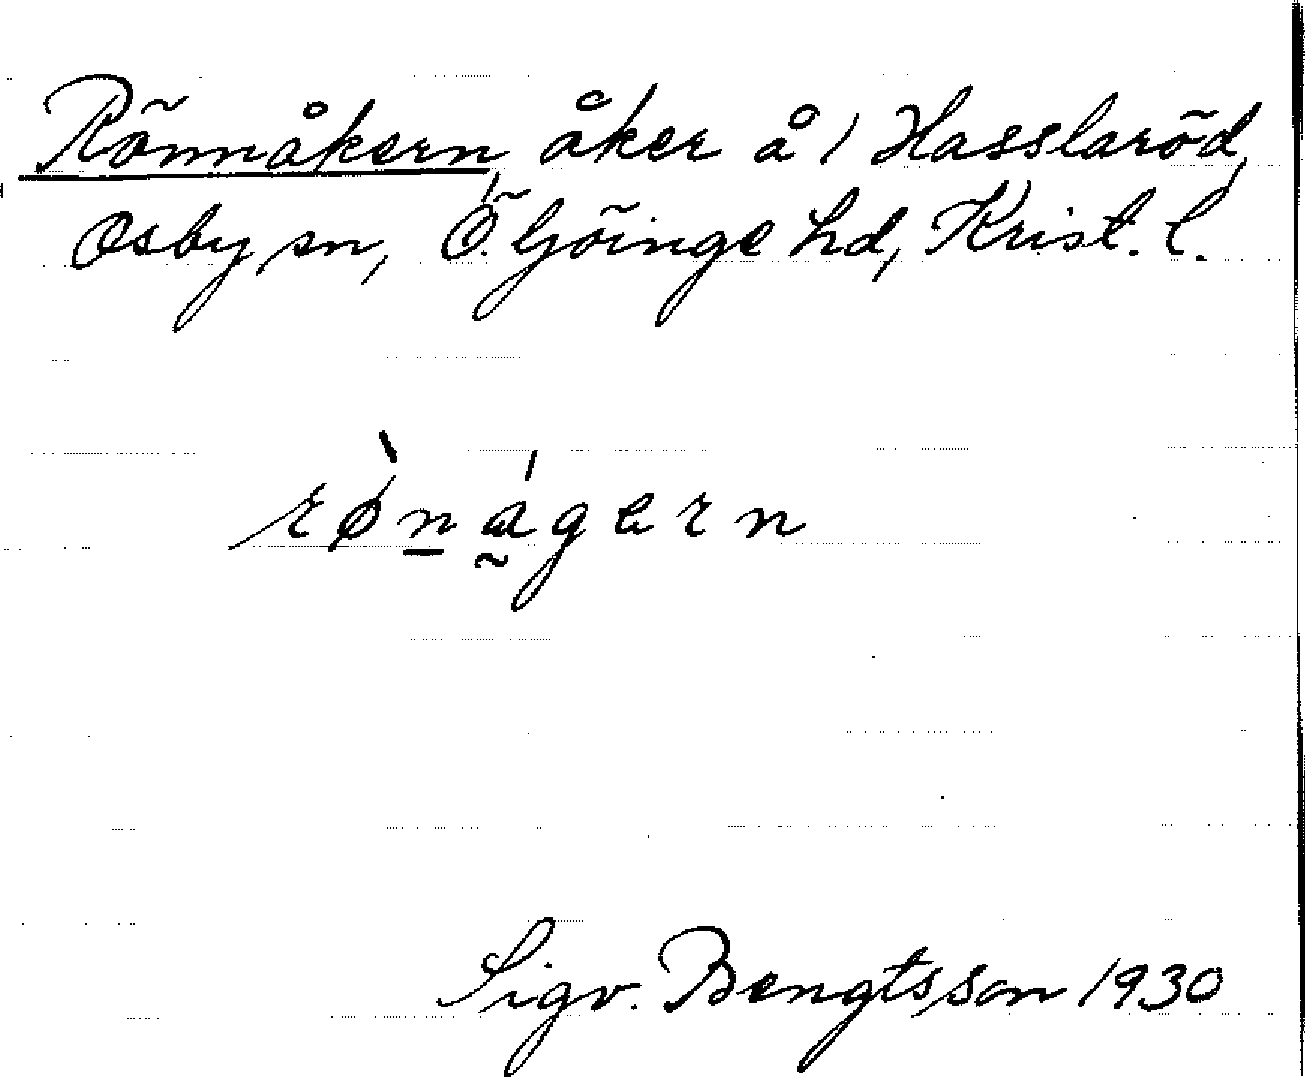 Rönnåkern, åker å 1 Hasslaröd,
Osby sn, Ö. Göinge hd, Krist. l.
rø̀ná̰gern
Sigv. Bengtsson 1930